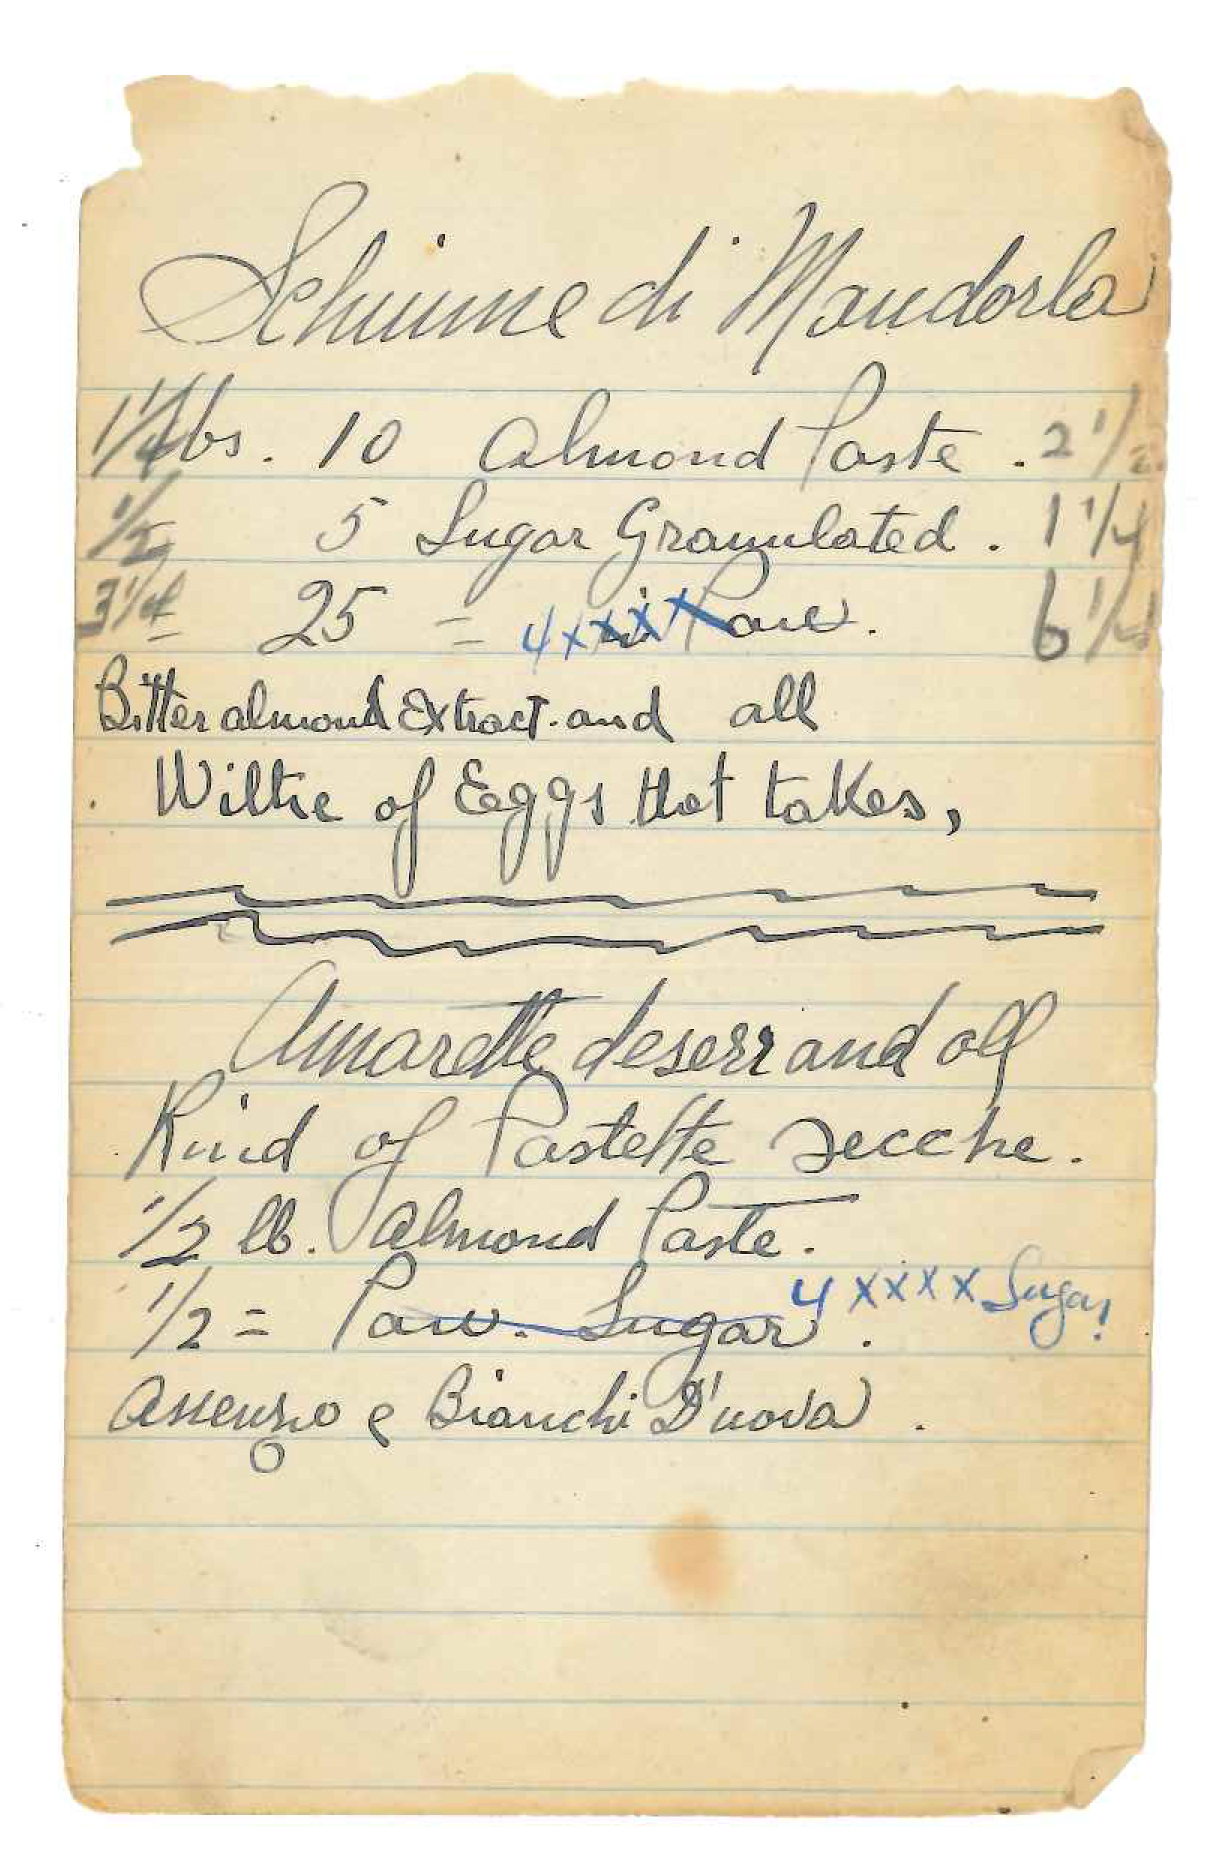 Schiume di Mandorla
1 1/4 lbs. 10 Almond Paste . 2 1/2
1/2 5 Sugar Granulated . 1 1/4
3 1/4 = 25 = 4xxxx Pow. 6 1/4
Bitter almond Extract. and all
Wiltie of Eggs that takes,
Amarette deserr and all
Kind of Pastette secche.
1/2 lb. Almond Paste.
1/2 = Pow. Sugar . 4 xxxx Sugar!
Assenzo e Bianchi D'uova .